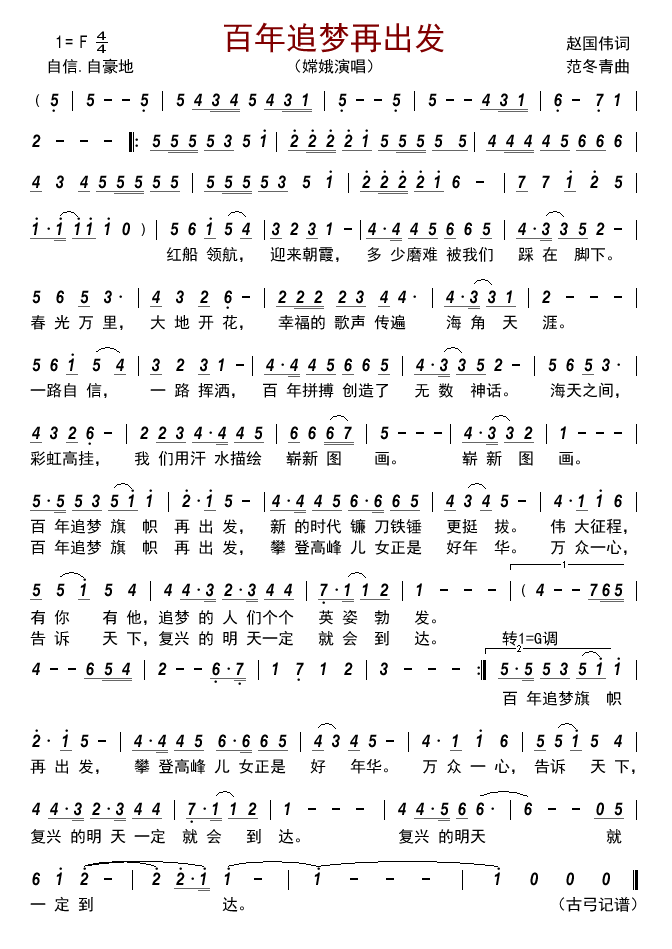 百年追梦再出发
1= F 4/4
赵国伟词
自信.自豪地
（嫦娥演唱）
范冬青曲
( 5 | 5 - - 5 | 5 4 3 4 5 4 3 1 | 5 - - 5 | 5 - - 4 3 1 | 6 - - 7 1 |
2 - - - ‖: 5 5 5 5 3 5 1 | 2 2 2 2 1 5 5 5 5 5 | 4 4 4 4 5 6 6 6 |
4 3 4 5 5 5 5 5 | 5 5 5 5 3 5 1 | 2 2 2 2 1 6 - | 7 7 1 2 5 |
1 · 1 1 1 1 0 ) | 5 6 1 5 4 | 3 2 3 1 - | 4 · 4 4 5 6 6 5 | 4 · 3 3 5 2 - |
红船 领航， 迎来朝霞， 多 少磨难 被我们 踩 在 脚下。
5 6 5 3 · | 4 3 2 6 - | 2 2 2 2 3 4 4 · | 4 · 3 3 1 | 2 - - - |
春 光 万 里， 大 地 开 花， 幸福的 歌声 传遍 海 角 天 涯。
5 6 1 5 4 | 3 2 3 1 - | 4 · 4 4 5 6 6 5 | 4 · 3 3 5 2 - | 5 6 5 3 · |
一路自 信， 一 路 挥洒， 百 年拼搏 创造了 无 数 神话。 海天之间，
4 3 2 6 - | 2 2 3 4 · 4 4 5 | 6 6 6 7 | 5 - - - | 4 · 3 3 2 | 1 - - - |
彩虹高挂， 我 们用汗 水描绘 崭新 图 画。 崭 新 图 画。
5 · 5 5 3 5 1 1 | 2 · 1 5 - | 4 · 4 4 5 6 · 6 6 5 | 4 3 4 5 - | 4 · 1 1 6 |
百 年追梦 旗 帜 再 出 发， 新 的时代 镰 刀铁锤 更挺 拔。 伟 大征程，
百 年追梦 旗 帜 再 出 发， 攀 登高峰 儿 女正是 好年 华。 万 众一心，
5 5 1 5 4 | 4 4 · 3 2 · 3 4 4 | 7 · 1 1 2 | 1 - - - | 1 ( 4 - - 7 6 5 |
有 你 有 他，追梦 的 人 们个个 英 姿 勃 发。
告 诉 天 下，复兴 的 明 天一定 就 会 到 达。 转1=G调
4 - - 6 5 4 | 2 - - 6 · 7 | 1 7 1 2 | 3 - - - :‖ 2 5 · 5 5 3 5 1 1 |
百 年追梦旗 帜
2 · 1 5 - | 4 · 4 4 5 6 · 6 6 5 | 4 3 4 5 - | 4 · 1 1 6 | 5 5 1 5 4 |
再 出 发， 攀 登高峰 儿 女正是 好 年华。 万 众 一 心， 告诉 天 下，
4 4 · 3 2 · 3 4 4 | 7 · 1 1 2 | 1 - - - | 4 4 · 5 6 6 · | 6 - - 0 5 |
复兴 的明 天 一定 就 会 到 达。 复兴 的明天 就
6 1 2 - | 2 2 · 1 1 - | 1 - - - | 1 0 0 0 ‖
一 定 到 达。 （古弓记谱）